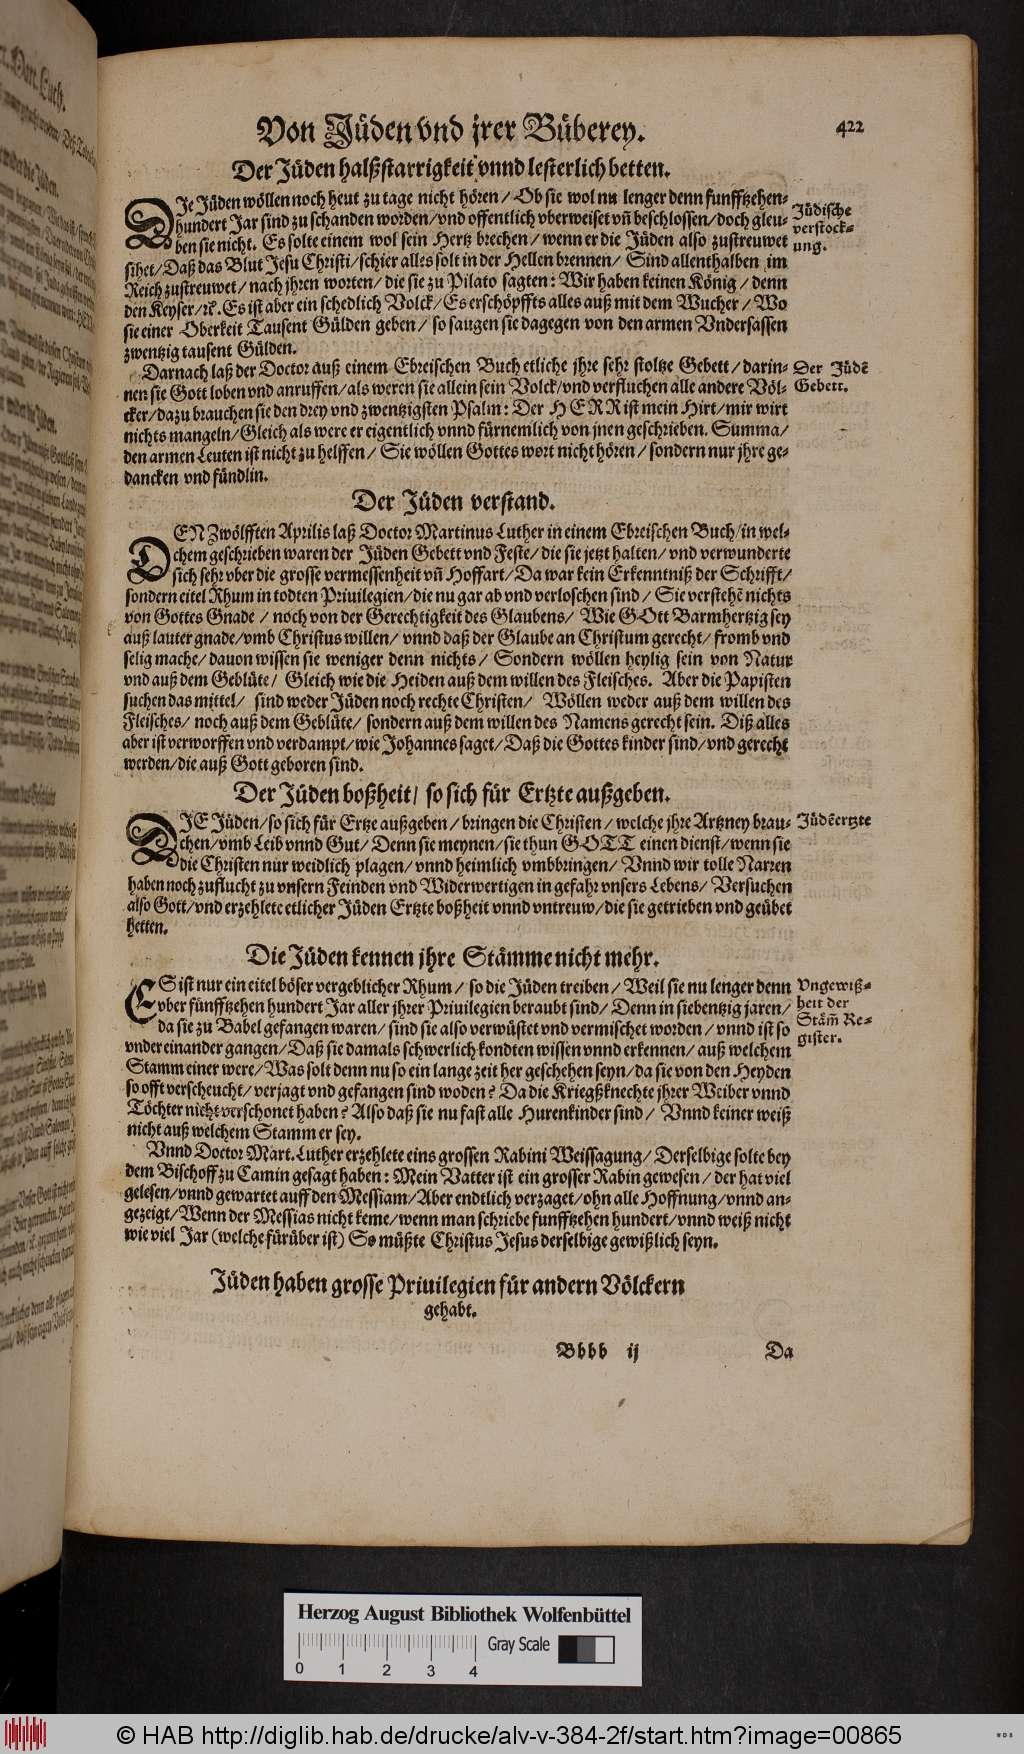 Von Jüden vnd jrer Büberey.
422
Der Jüden halßstarrigkeit vnnd lesterlich betten.
DIe Jüden wöllen noch heut zu tage nicht hören/ Ob sie wol nu lenger denn funfftzehen-
hundert Jar sind zu schanden worden/ vnd offentlich vberweiset vñ beschlossen/ doch gleu-
ben sie nicht. Es solte einem wol sein Hertz brechen/ wenn er die Jüden also zustreuwet
sihet/ Daß das Blut Jesu Christi/ schier alles solt in der Hellen brennen/ Sind allenthalben im
Reich zustreuwet/ nach jhren worten/ die sie zu Pilato sagten: Wir haben keinen König/ denn
den Keyser/ ꝛc̃. Es ist aber ein schedlich Volck/ Es erschöpffts alles auß mit dem Wucher/ Wo
sie einer Oberkeit Tausent Gülden geben/ so saugen sie dagegen von den armen Vndersassen
zwentzig tausent Gülden.
Jüdische
verstock-
ung.
Darnach laß der Doctor auß einem Ebreischen Buch etliche jhre sehr stoltze Gebett/ darin-
nen sie Gott loben vnd anruffen/ als weren sie allein sein Volck/ vnd verfluchen alle andere Völ-
cker/ dazu brauchen sie den drey vnd zwentzigsten Psalm: Der HERR ist mein Hirt/ mir wirt
nichts mangeln/ Gleich als were er eigentlich vnnd fürnemlich von jnen geschrieben. Summa/
den armen Leuten ist nicht zu helffen/ Sie wöllen Gottes wort nicht hören/ sondern nur jhre ge-
dancken vnd fündlin.
Der Jüdẽ
Gebett.
Der Jüden verstand.
DEN Zwölfften Aprilis laß Doctor Martinus Luther in einem Ebreischen Buch/ in wel-
chem geschrieben waren der Jüden Gebett vnd Feste/ die sie jetzt halten/ vnd verwunderte
sich sehr vber die grosse vermessenheit vñ Hoffart/ Da war kein Erkenntniß der Schrifft/
sondern eitel Rhum in todten Priuilegien/ die nu gar ab vnd verloschen sind/ Sie verstehẽ nichts
von Gottes Gnade/ noch von der Gerechtigkeit des Glaubens/ Wie GOtt Barmhertzig sey
auß lauter gnade/ vmb Christus willen/ vnnd daß der Glaube an Christum gerecht/ fromb vnd
selig mache/ dauon wissen sie weniger denn nichts/ Sondern wöllen heylig sein von Natur
vnd auß dem Geblüte/ Gleich wie die Heiden auß dem willen des Fleisches. Aber die Papisten
suchen das mittel/ sind weder Jüden noch rechte Christen/ Wöllen weder auß dem willen des
Fleisches/ noch auß dem Geblüte/ sondern auß dem willen des Namens gerecht sein. Diß alles
aber ist verworffen vnd verdampt/ wie Johannes saget/ Daß die Gottes kinder sind/ vnd gerecht
werden/ die auß Gott geboren sind.
Der Jüden boßheit/ so sich für Ertzte außgeben.
DIE Jüden/ so sich für Ertze außgeben/ bringen die Christen/ welche jhre Artzney brau-
chen/ vmb Leib vnnd Gut/ Denn sie meynen/ sie thun GOTT einen dienst/ wenn sie
die Christen nur weidlich plagen/ vnnd heimlich vmbbringen/ Vnnd wir tolle Narren
haben noch zuflucht zu vnsern Feinden vnd Widerwertigen in gefahr vnsers Lebens/ Versuchen
also Gott/ vnd erzehlete etlicher Jüden Ertzte boßheit vnnd vntreuw/ die sie getrieben vnd geübet
hetten.
Jüdẽertzte
Die Jüden kennen jhre Stämme nicht mehr.
ES ist nur ein eitel böser vergeblicher Rhum/ so die Jüden treiben/ Weil sie nu lenger denn
vber fünfftzehen hundert Jar aller jhrer Priuilegien beraubt sind/ Denn in siebentzig jaren/
da sie zu Babel gefangen waren/ sind sie also verwüstet vnd vermischet worden/ vnnd ist so
vnder einander gangen/ Daß sie damals schwerlich kondten wissen vnnd erkennen/ auß welchem
Stamm einer were/ Was solt denn nu so ein lange zeit her geschehen seyn/ da sie von den Heyden
so offt verscheucht/ verjagt vnd gefangen sind woden? Da die Kriegßknechte jhrer Weiber vnnd
Töchter nicht verschonet haben? Also daß sie nu fast alle Hurenkinder sind/ Vnnd keiner weiß
nicht auß welchem Stamm er sey.
Vngewiß-
heit der
Stäm̃ Re-
gister.
Vnnd Doctor Mart. Luther erzehlete eins grossen Rabini Weissagung/ Derselbige solte bey
dem Bischoff zu Camin gesagt haben: Mein Vatter ist ein grosser Rabin gewesen/ der hat viel
gelesen/ vnnd gewartet auff den Messiam/ Aber endtlich verzaget/ ohn alle Hoffnung/ vnnd an-
gezeigt/ Wenn der Messias nicht keme/ wenn man schriebe funfftzehen hundert/ vnnd weiß nicht
wie viel Jar (welche fürüber ist) So müßte Christus Jesus derselbige gewißlich seyn.
Jüden haben grosse Priuilegien für andern Völckern
gehabt.
Bbbb ij
Da
Herzog August Bibliothek Wolfenbüttel
Gray Scale
0 1 2 3 4
© HAB http://diglib.hab.de/drucke/alv-v-384-2f/start.htm?image=00865